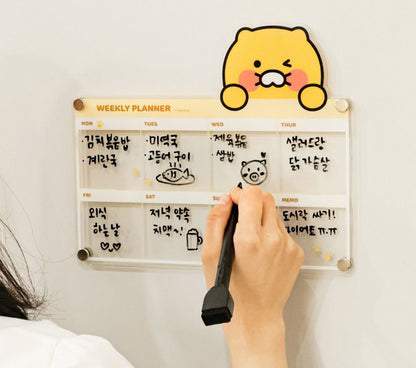 WEEKLY PLANNER
MON
·김치볶음밥
·계란국
TUES
·미역국
고등어 구이
WED
·제육볶음
·쌈밥
THUR
샐러드랑
닭가슴살
FRI
외식
하는 날
SAT
저녁 약속
치맥~!
MEMO
도시락 싸기!
다이어트 ㅠ.ㅠ